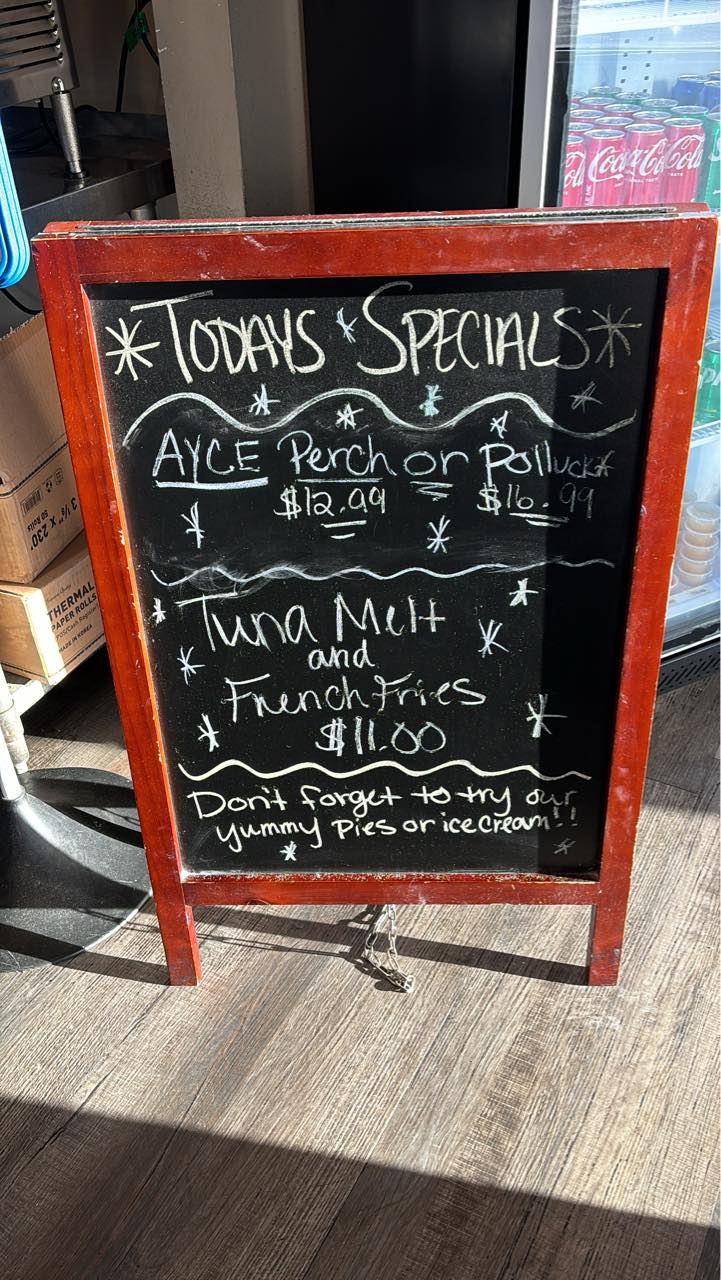 TODAYS SPECIALS
AYCE Perch or Polluck
$12.99 $16.99
Tuna Melt
and
French Fries
$11.00
Don't forget to try our
yummy Pies or ice cream!!
Coca-Cola
3 1/8" X 230'
50 Rolls
THERMAL
PAPER ROLLS
POS/Cash Register
MADE IN KOREA